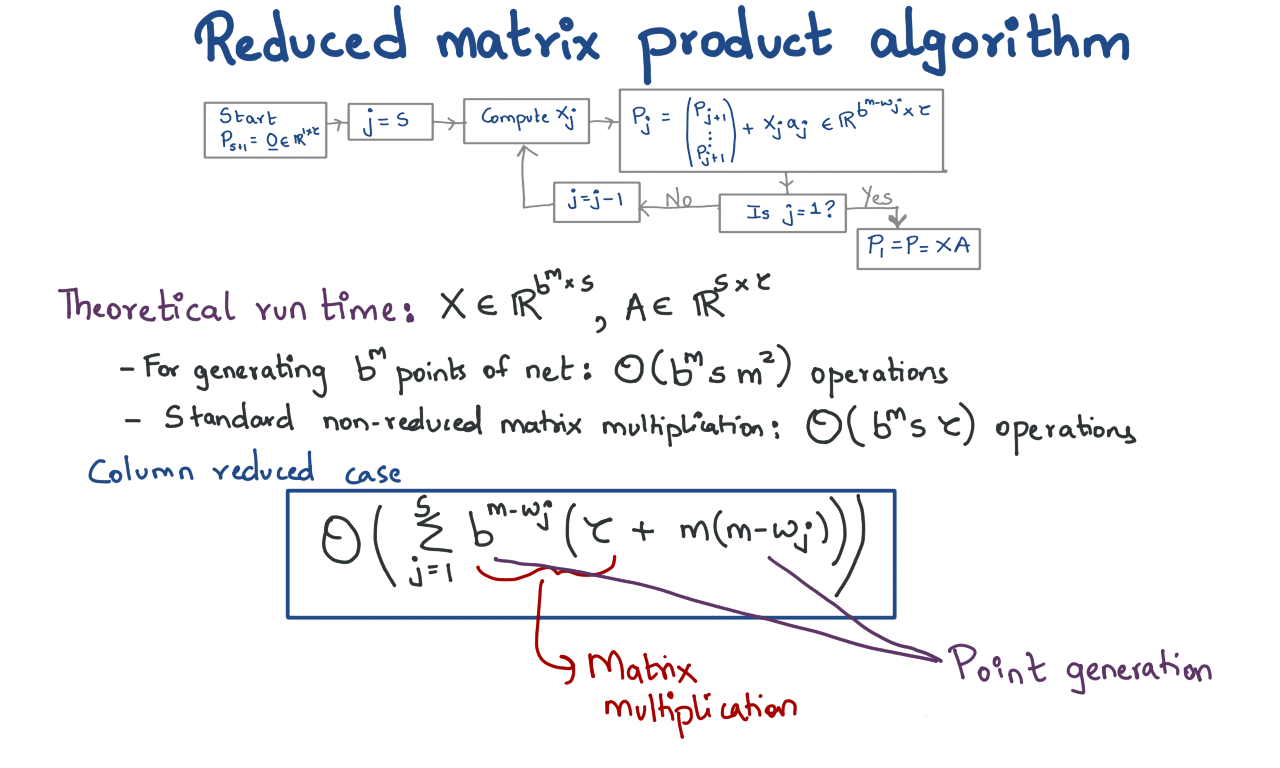 Reduced matrix product algorithm
Start
P_{s+1} = 0 ∈ ℝ^{1×τ}
j = s
Compute x_j
P_j = (P_{j+1} ⋮ P_{j+1}) + x_j a_j ∈ ℝ^{b^{m-w_j} × τ}
j = j-1
No
Is j = 1?
Yes
P_1 = P = XA
Theoretical run time: X ∈ ℝ^{b^m × s}, A ∈ ℝ^{s × τ}
- For generating b^m points of net: O(b^m s m^2) operations
- Standard non-reduced matrix multiplication: O(b^m s τ) operations
Column reduced case
O(∑_{j=1}^{s} b^{m-w_j} (τ + m(m-w_j)))
Matrix
multiplication
Point generation